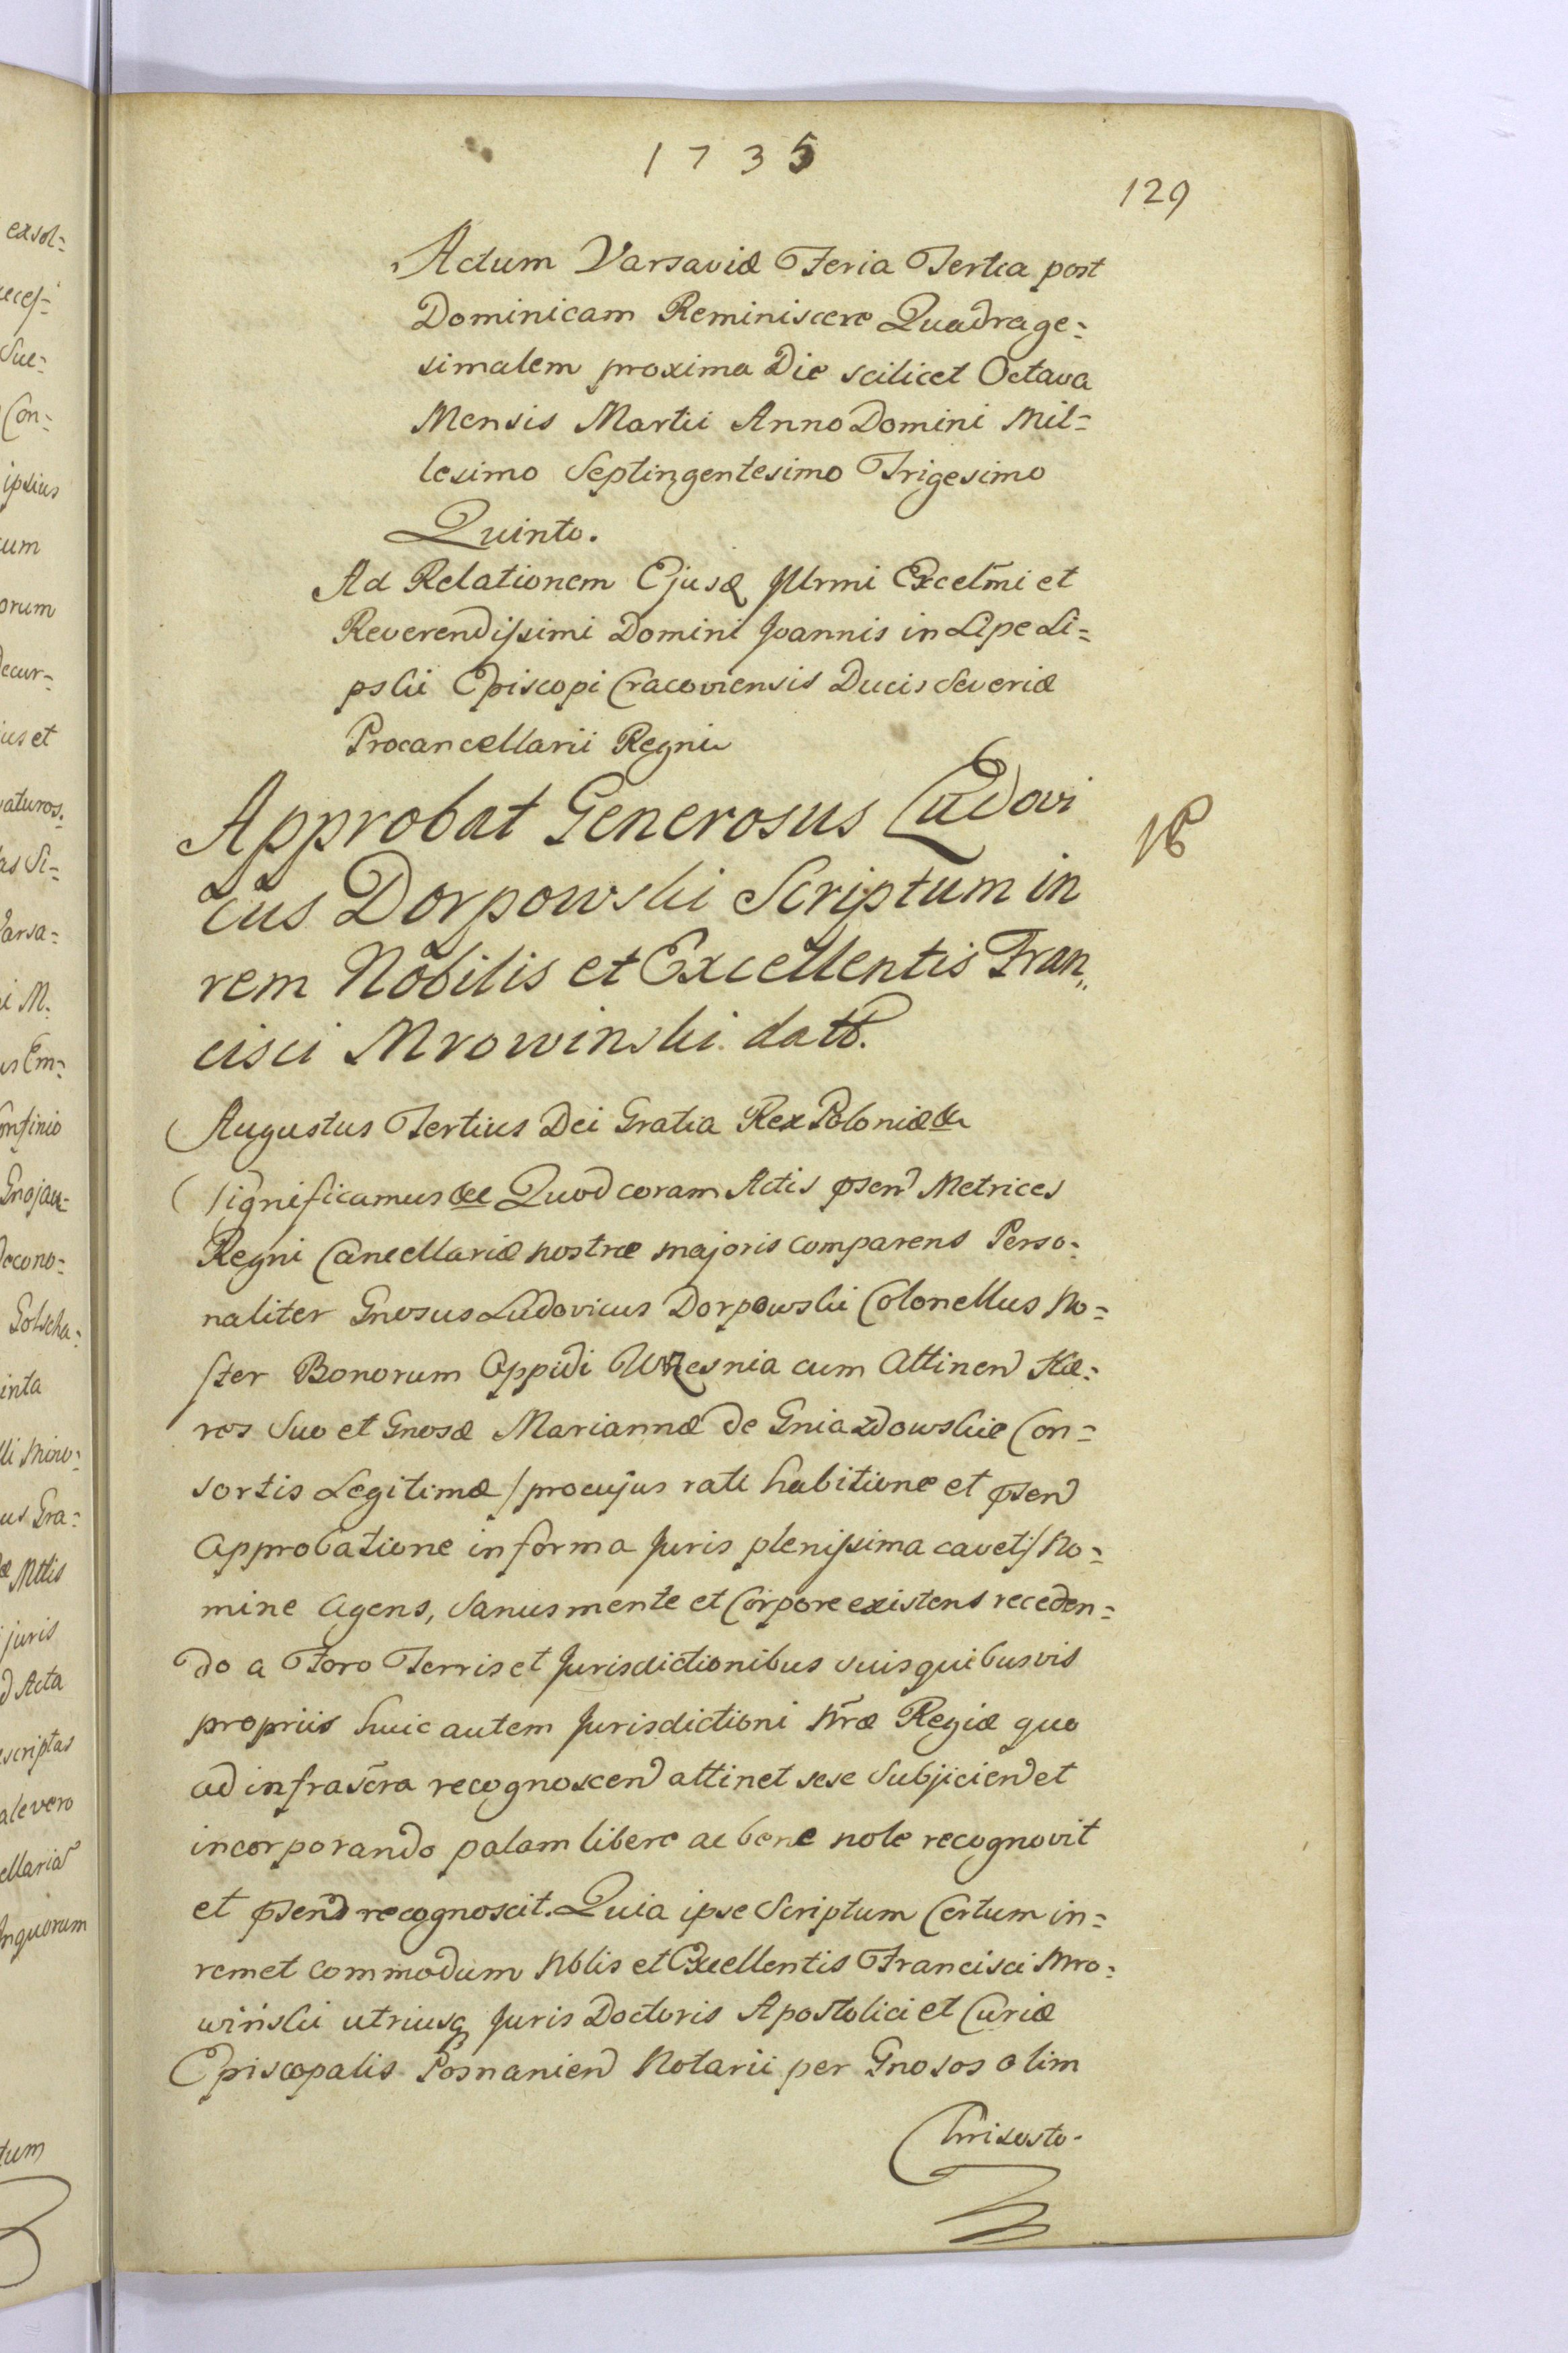 1735
129
Actum Varsaviæ Feria Tertia post
Dominicam Reminiscere Quadrage=
simalem proxima Die scilicet Octava
Mensis Martii Anno Domini Mil=
lesimo Septingentesimo Trigesimo
Quinto.
Ad Relationem Ejusd Illrmi Excelm̃i et
Reverendissimi Domini Joannis in Lipe Li=
pski Episcopi Cracoviensis Ducis Severiæ
Procancellarii Regni
Approbat Generosus Ludovi
cus Dorpowski Scriptum in
rem Nobilis et Excellentis Fran„
cisci Mrowinski datt.
Augustus Tertius Dei Gratia Rex Poloniæ &
Significamus &c Quod coram Actis psen Metrices
Regni Cancellariæ nostræ majoris comparens Perso=
naliter Gnosus Ludovicus Dorpowski Colonellus No=
ster Bonorum Oppidi Wresnia cum Attinen Hæ=
res Suo et Gnosæ Mariannæ de Gniazdowskie Con=
sortis Legitimæ /pro cujus rati habitione et psen
Approbatione in forma Juris plenissima cavet/ No=
mine Agens, Sanus mente et Corpore existens receden=
do a Foro Terris et Jurisdictionibus suis quibusvis
propriis huic autem Jurisdictioni Nr̃æ Regiæ quo
ad infrascr̃a recognoscen attinet sese Subjicien et
incorporando palam libere ac bene nole recognovit
et psen recognoscit. Quia ipse Scriptum Certum in=
rem et commodum Nblis et Excellentis Francisci Mro=
wiński utriusq Juris Doctoris Apostolici et Curiæ
Episcopalis Posnanien Notarii per Gnosos olim
Chrisosto-
exsol=
Sue=
Con=
ipsius
orum
decur=
ius et
aturos.
as Si=
Varsa=
i M.
us Em=
onfinio
Gnojau=
decono=
Golscha=
inta
us Gra=
æ Mttis
juris
d Acta
scriptas
ale vero
ellaria
nquorum
tum